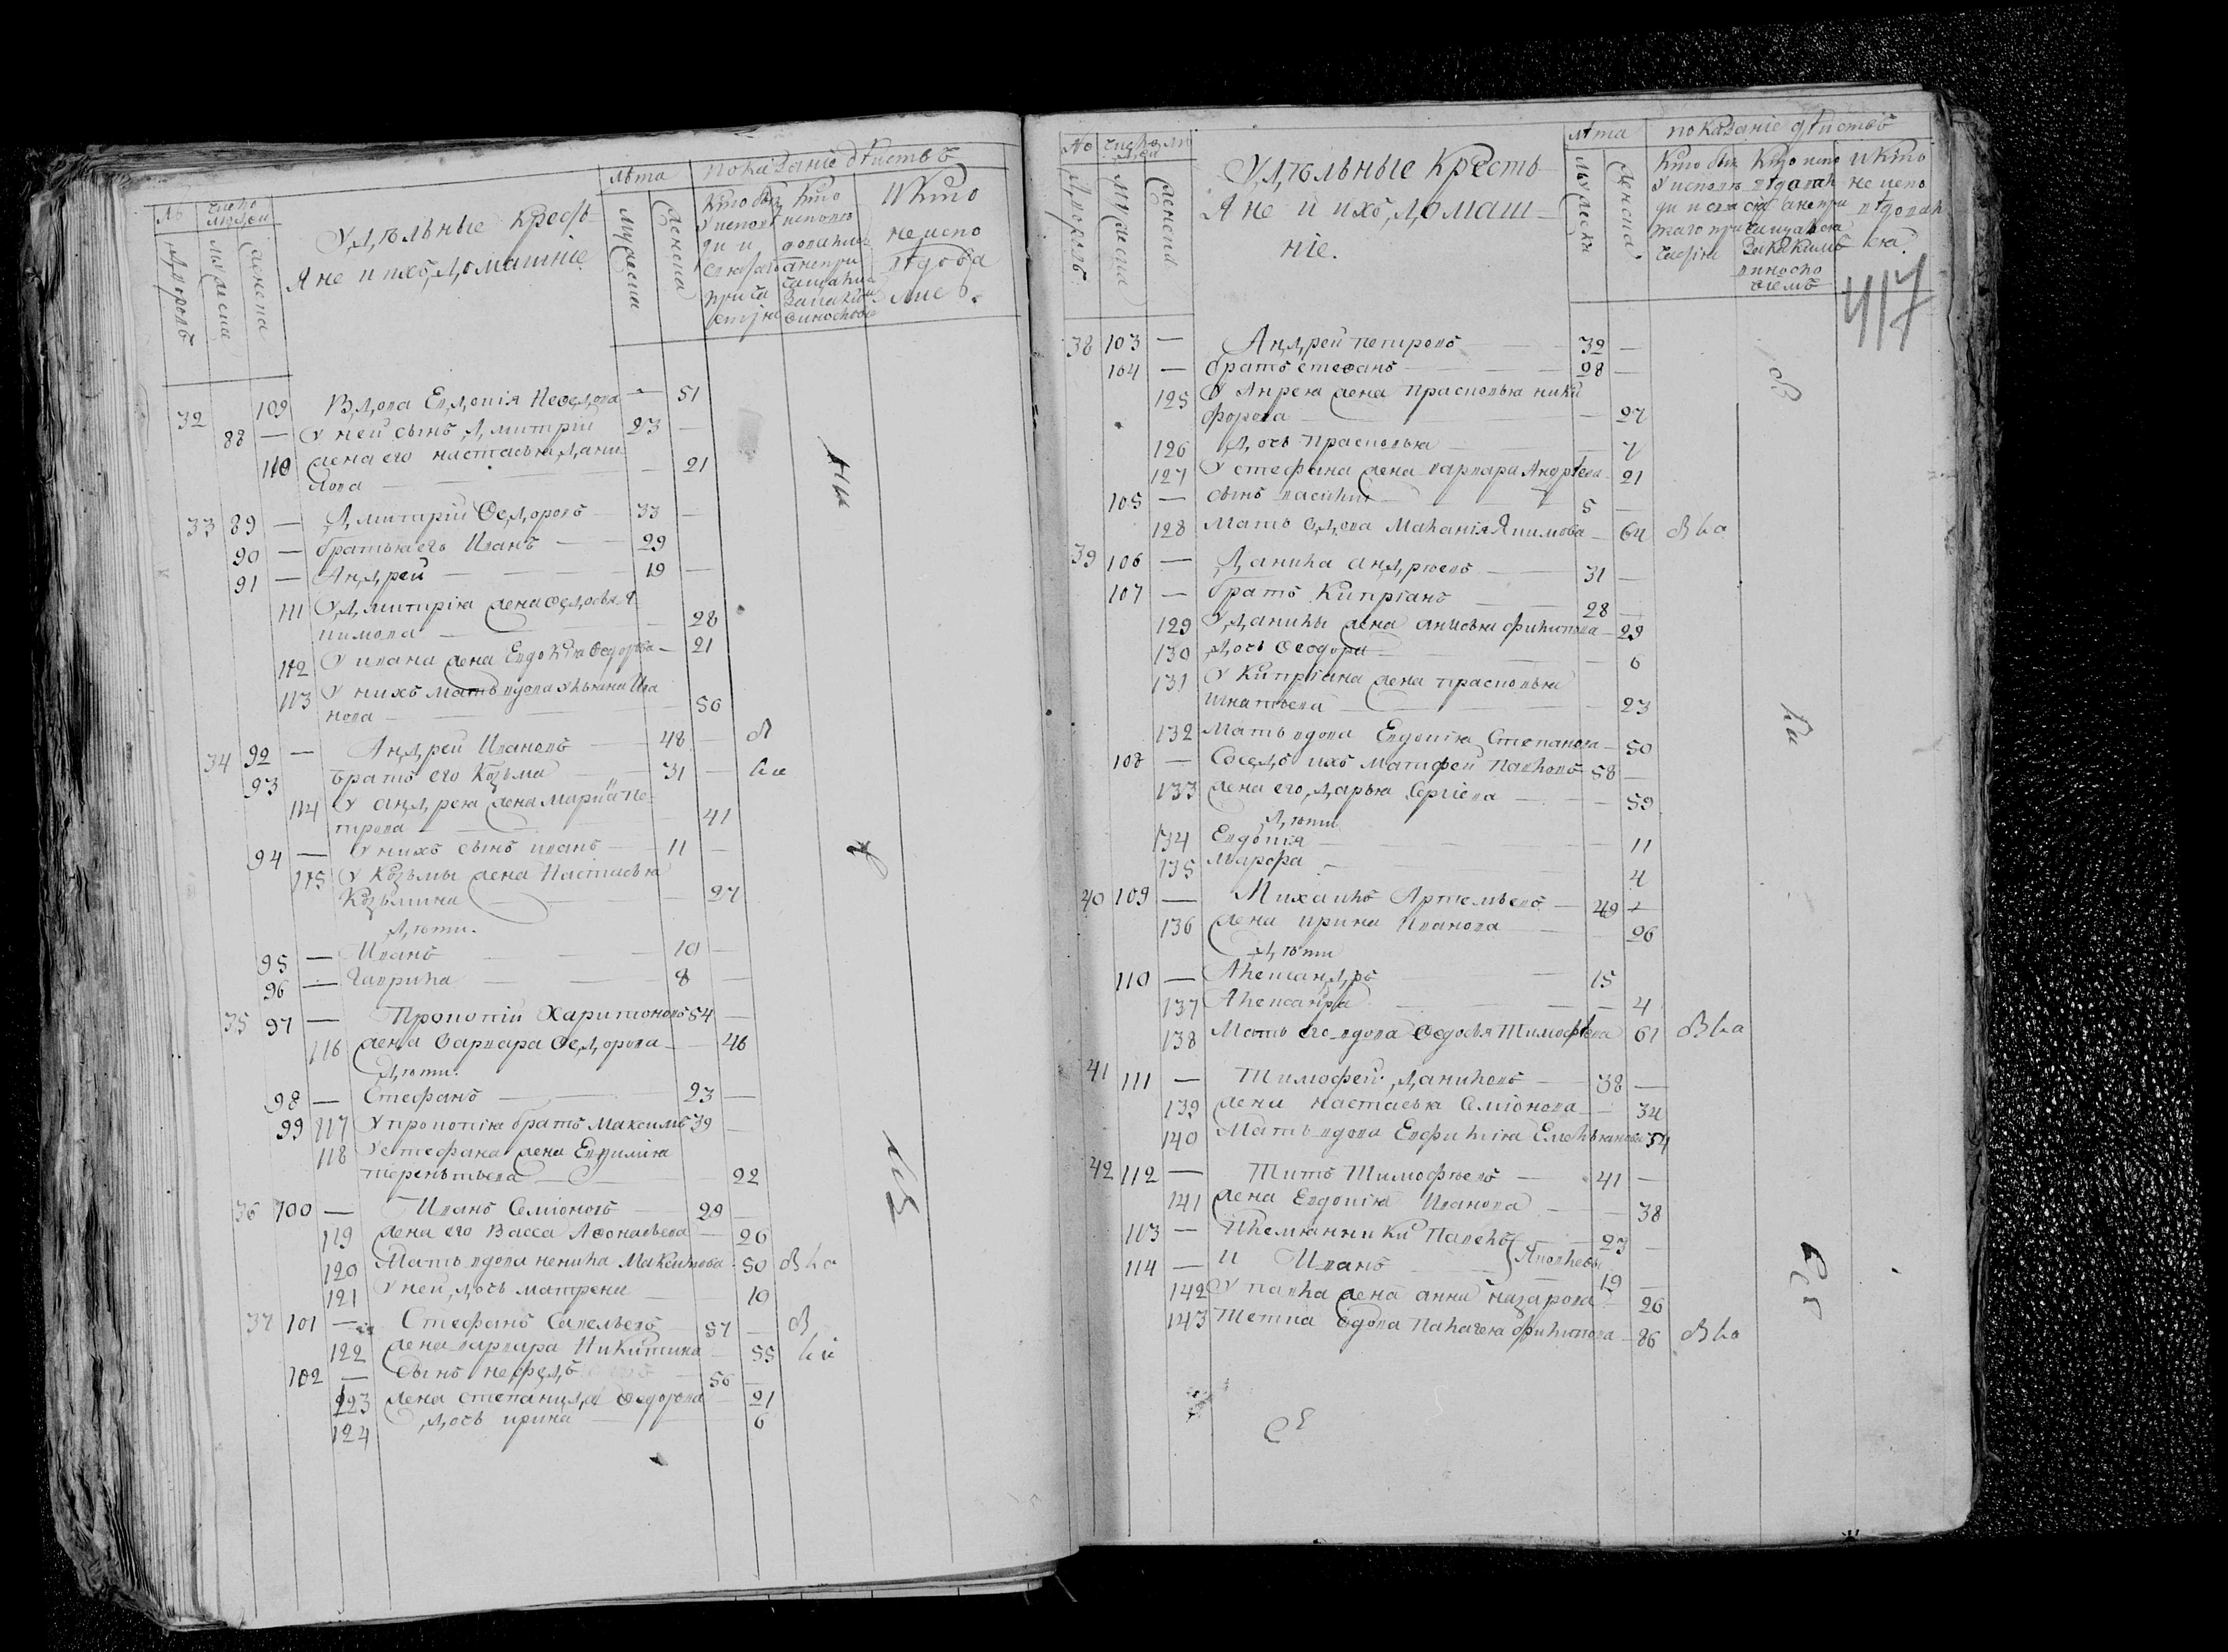 № число людей
дворовъ мужеска женска
Удѣльные кресть-
яне и ихъ домашніе
лѣта
мужеска женска
показаніе дѣйствъ
Кто былъ у исповѣди и святаго причастія
Кто исповѣдался а не причащался и за какимъ винословіемъ
И кто не исповѣдовался
32 109 Вдова Евдокія Неѳедова — 51
88 — У ней сынъ Дмитрій 23 —
110 жена его настасья Дани
лова — 21
33 89 — Дмитрій Ѳедоровъ 33 —
90 — братья его Иванъ — 29
91 — Андрей — 19 —
111 У Дмитрія жена Ѳедосья Я
кимова — 28
112 У ивана жена Евдокія Ѳедорова — 21
113 У нихъ мать вдова Ульяна Ива
нова — 56
34 92 — Андрей Ивановъ — 48 — в
93 братъ его Козьма — 31 — ка
114 У андрея жена Марія Пе
трова — 41
94 — У нихъ сынъ иванъ — 11 —
115 У Козьмы жена Настасья
Козьмина — 27
Дѣти.
95 — Иванъ 10 —
96 — Гаврила 8 —
35 97 — Прокопій Харитоновъ 54 —
116 жена Варвара Ѳедорова — 46
Дѣти.
98 — Стефанъ — 23 —
99 117 У прокопія братъ Максимъ 39 —
118 У стефана жена Евдимія
терентьева — 22
36 100 — Иванъ Семіоновъ 29 —
119 жена его Васса Аѳонасьева — 26
120 Мать вдова ненила Максимова — 50 В ка
121 У ней дочь матрена 10
37 101 — Стефанъ Савельевъ 57 — в
122 жена варвара Никитина — 55 ка
102 — Сынъ неѳедъ 56 —
123 жена степанида Ѳедорова — 21
124 дочь ирина 6
№ число людей
дворовъ мужеска женска
Удѣльные кресть-
яне и ихъ домаш-
ніе.
лѣта
мужеска женска
показаніе дѣйствъ
Кто былъ у исповѣди и святаго причастія
Кто исповѣдался а не причащался за какимъ виносло
віемъ
и кто не испо
вѣдовался
417
38 103 — Андрей петровъ 32 —
104 — братъ стефанъ 28 —
125 У Анрея жена Прасковья ники
форова — 27
126 Дочь Прасковья 7
127 У стефана жена варвара Андрѣева 21
105 — сынъ василій 5 —
128 Мать вдова Маланія Якимова — 64 В ка
39 106 — Данила андрѣевъ — 31 —
107 — братъ Кипріанъ 28 —
129 У данилы жена анисья филипова — 29
130 Дочь Ѳеодора — 6
131 У Кипріана жена прасковья
игнатьева — 23
132 Мать вдова Евдокія Степанова — 50
108 — Соседъ ихъ матфей Павловъ 58 —
133 жена его дарья Сергіева — 59
Дѣти
134 Евдокія 11
135 Марфа 4
40 109 — Михаилъ Артемьевъ — 49 —
136 жена ирина Иванова 26
Дѣти
110 — Александръ 15
137 Александра — 4
138 Мать его вдова Ѳедосья Тимофѣева 61 В ка
41 111 — Тимофей Даниловъ 38 —
139 жена настасья Семіонова — 34
140 Мать вдова Евфимія Емельянова 54
42 112 — Титъ Тимофѣевъ — 41 —
141 жена Евдокія Иванова — 38
113 — Племянники Павелъ 23 —
114 — и Иванъ Яковлевы 19 —
142 У павла жена анна назарова 26
143 Тетка вдова Палагея филипова — 86 В ка